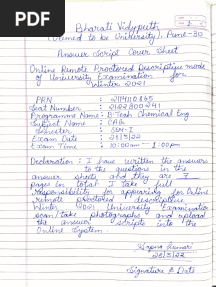 PDF
Bharati Vidyapeeth
(Deemed to be University), Pune-30
Answer Script Cover Sheet
Online Remote Proctored Descriptive mode
of University Examination for
Winter 2021
PRN :
Seat Number :
Programme Name : B.Tech Chemical Eng
Subject Name :
Semester :
Exam Date :
Exam Time : 10:00am 1:00pm
Declaration : I have written the answers
to the questions in the
answer sheets and they are 7
pages in total I take full
responsibility for appearing for Online
remote proctored descriptive
Winter 2021 University Examination
scan/take photographs and upload
the answer scripts into the
Online System.
Kumari
Signature & Date